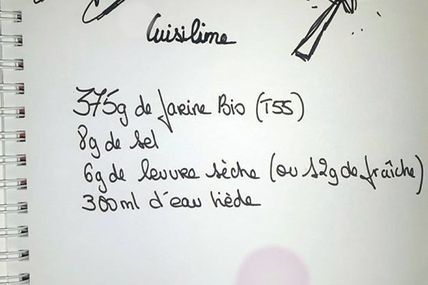 Cuisilime
375g de farine Bio (T55)
8g de sel
6g de levure sèche (ou 12g de fraîche)
300ml d'eau tiède